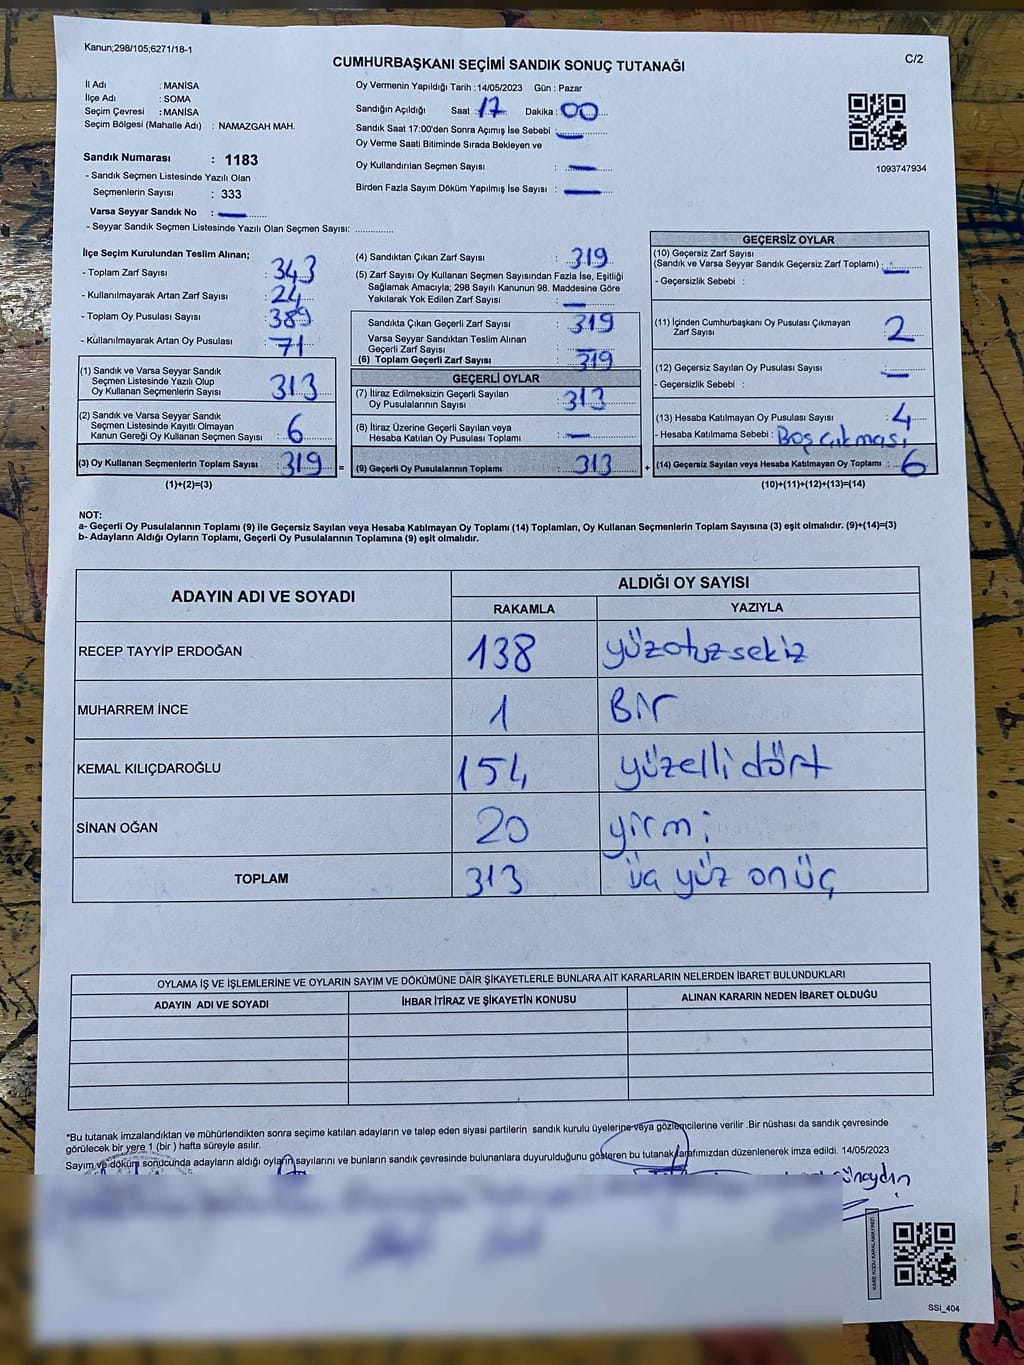 Kanun;298/105;6271/18-1
CUMHURBAŞKANI SEÇİMİ SANDIK SONUÇ TUTANAĞI
C/2
İl Adı : MANİSA
İlçe Adı : SOMA
Seçim Çevresi : MANİSA
Seçim Bölgesi (Mahalle Adı) : NAMAZGAH MAH.
Sandık Numarası : 1183
- Sandık Seçmen Listesinde Yazılı Olan
Seçmenlerin Sayısı : 333
Varsa Seyyar Sandık No :
- Seyyar Sandık Seçmen Listesinde Yazılı Olan Seçmen Sayısı: ..............
Oy Vermenin Yapıldığı Tarih : 14/05/2023 Gün : Pazar
Sandığın Açıldığı Saat : 17 Dakika : 00
Sandık Saat 17:00'den Sonra Açımış İse Sebebi :
Oy Verme Saati Bitiminde Sırada Bekleyen ve
Oy Kullandırılan Seçmen Sayısı : —
Birden Fazla Sayım Döküm Yapılmış İse Sayısı : —
1093747934
İlçe Seçim Kurulundan Teslim Alınan;
- Toplam Zarf Sayısı : 343
- Kullanılmayarak Artan Zarf Sayısı : 24
- Toplam Oy Pusulası Sayısı : 389
- Kullanılmayarak Artan Oy Pusulası : 71
(1) Sandık ve Varsa Seyyar Sandık
Seçmen Listesinde Yazılı Olup
Oy Kullanan Seçmenlerin Sayısı : 313
(2) Sandık ve Varsa Seyyar Sandık
Seçmen Listesinde Kayıtlı Olmayan
Kanun Gereği Oy Kullanan Seçmen Sayısı : 6
(3) Oy Kullanan Seçmenlerin Toplam Sayısı : 319 =
(1)+(2)=(3)
(4) Sandıktan Çıkan Zarf Sayısı : 319
(5) Zarf Sayısı Oy Kullanan Seçmen Sayısından Fazla İse, Eşitliği
Sağlamak Amacıyla; 298 Sayılı Kanunun 98. Maddesine Göre
Yakılarak Yok Edilen Zarf Sayısı : —
Sandıkta Çıkan Geçerli Zarf Sayısı : 319
Varsa Seyyar Sandıktan Teslim Alınan
Geçerli Zarf Sayısı : —
(6) Toplam Geçerli Zarf Sayısı : 319
GEÇERLİ OYLAR
(7) İtiraz Edilmeksizin Geçerli Sayılan
Oy Pusulalarının Sayısı : 313
(8) İtiraz Üzerine Geçerli Sayılan veya
Hesaba Katılan Oy Pusulası Toplamı : —
(9) Geçerli Oy Pusulalarının Toplamı 313 +
GEÇERSİZ OYLAR
(10) Geçersiz Zarf Sayısı
(Sandık ve Varsa Seyyar Sandık Geçersiz Zarf Toplamı) : —
- Geçersizlik Sebebi :
(11) İçinden Cumhurbaşkanı Oy Pusulası Çıkmayan
Zarf Sayısı : 2
(12) Geçersiz Sayılan Oy Pusulası Sayısı : —
- Geçersizlik Sebebi :
(13) Hesaba Katılmayan Oy Pusulası Sayısı : 4
- Hesaba Katılmama Sebebi : Boş çıkması
(14) Geçersiz Sayılan veya Hesaba Katılmayan Oy Toplamı : 6
(10)+(11)+(12)+(13)=(14)
NOT:
a- Geçerli Oy Pusulalarının Toplamı (9) ile Geçersiz Sayılan veya Hesaba Katılmayan Oy Toplamı (14) Toplamları, Oy Kullanan Seçmenlerin Toplam Sayısına (3) eşit olmalıdır. (9)+(14)=(3)
b- Adayların Aldığı Oyların Toplamı, Geçerli Oy Pusulalarının Toplamına (9) eşit olmalıdır.
ADAYIN ADI VE SOYADI ALDIĞI OY SAYISI
RAKAMLA YAZIYLA
RECEP TAYYİP ERDOĞAN 138 yüzotuzsekiz
MUHARREM İNCE 1 Bir
KEMAL KILIÇDAROĞLU 154 yüzelli dört
SİNAN OĞAN 20 yirmi
TOPLAM 313 üç yüz onüç
OYLAMA İŞ VE İŞLEMLERİNE VE OYLARIN SAYIM VE DÖKÜMÜNE DAİR ŞİKAYETLERLE BUNLARA AİT KARARLARIN NELERDEN İBARET BULUNDUKLARI
ADAYIN ADI VE SOYADI İHBAR İTİRAZ VE ŞİKAYETİN KONUSU ALINAN KARARIN NEDEN İBARET OLDUĞU
*Bu tutanak imzalandıktan ve mühürlendikten sonra seçime katılan adayların ve talep eden siyasi partilerin sandık kurulu üyelerine veya gözlemcilerine verilir .Bir nüshası da sandık çevresinde
görülecek bir yere 1 (bir ) hafta süreyle asılır.
Sayım ve döküm sonucunda adayların aldığı oyların sayılarını ve bunların sandık çevresinde bulunanlara duyurulduğunu gösteren bu tutanak tarafımızdan düzenlenerek imza edildi. 14/05/2023
KARE KODU KARALAMAYINIZ!
SSI_404